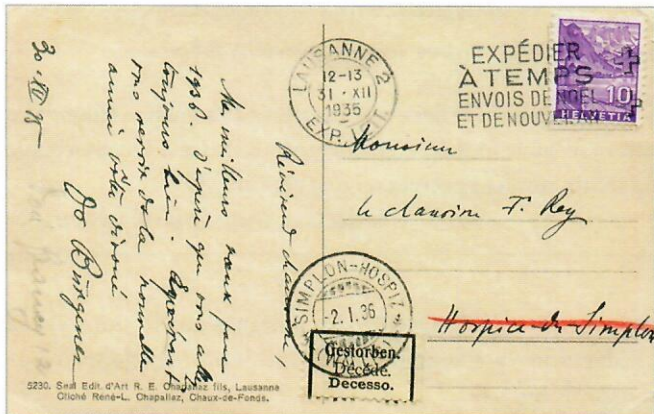 30. XII 35
Révérend chanoine,
Mes meilleurs vœux pour
1936. J'espère que vous allez
toujours bien.
vous revoir de la nouvelle
année
Jo Bürgener
LAUSANNE 2
12-13
31·XII
1935
EXP. LETT.
EXPÉDIER
À TEMPS
ENVOIS DE NOËL
ET DE NOUVEL AN
10
HELVETIA
Monsieur
le chanoine F. Rey
Hospice du Simplon
SIMPLON-HOSPIZ
-2.I.36
Gestorben.
Décédé.
Decesso.
5230. Seul Edit. d'Art R. E. Chapallaz fils, Lausanne
Cliché René-L. Chapallaz, Chaux-de-Fonds.